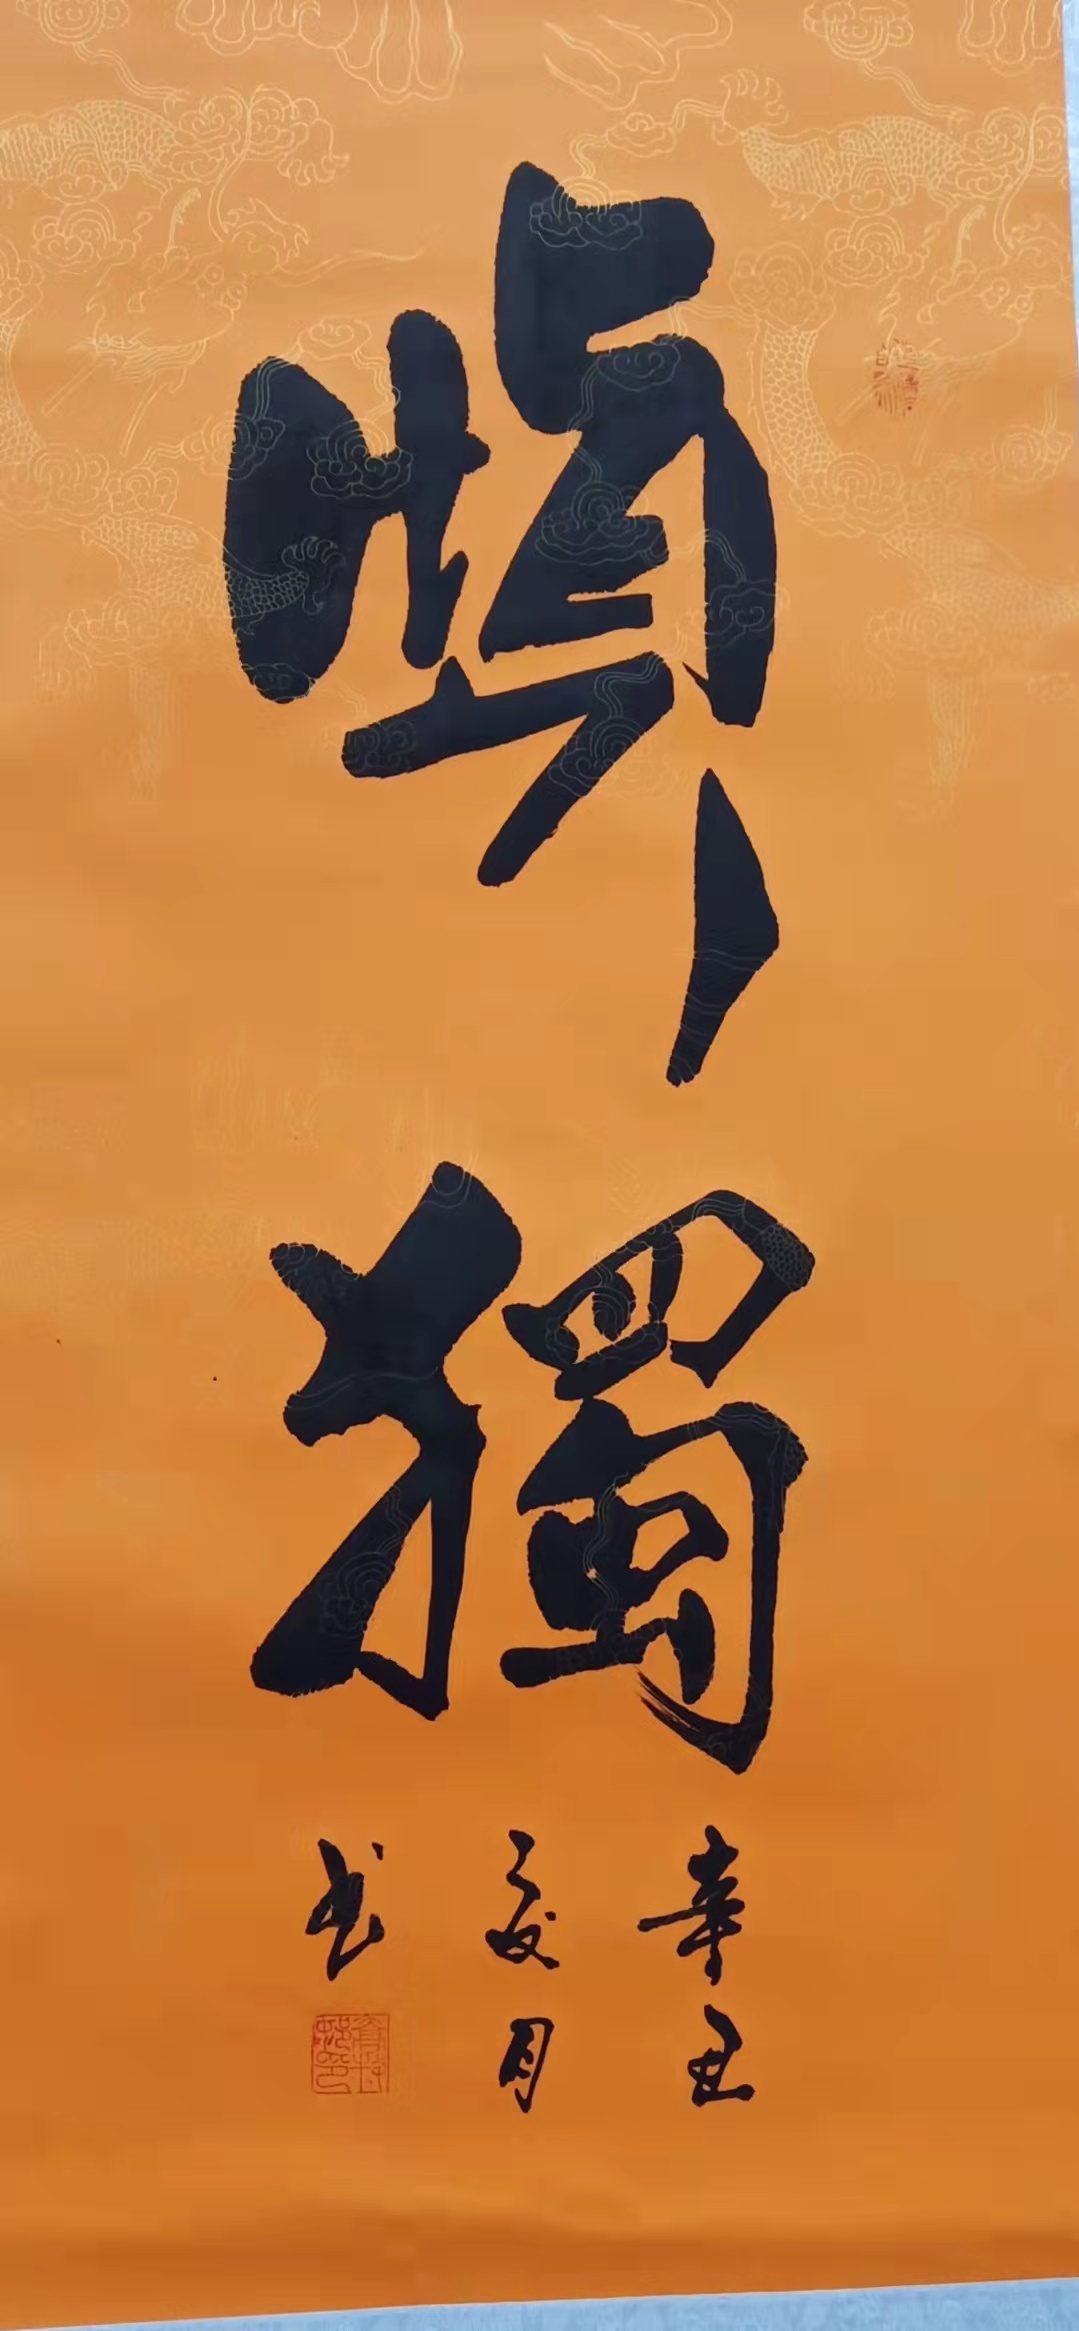 慎獨
辛丑
夏月
书